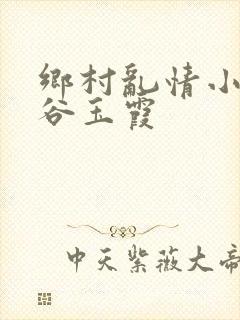 鄉村亂情小
谷玉霞
中天紫薇大帝